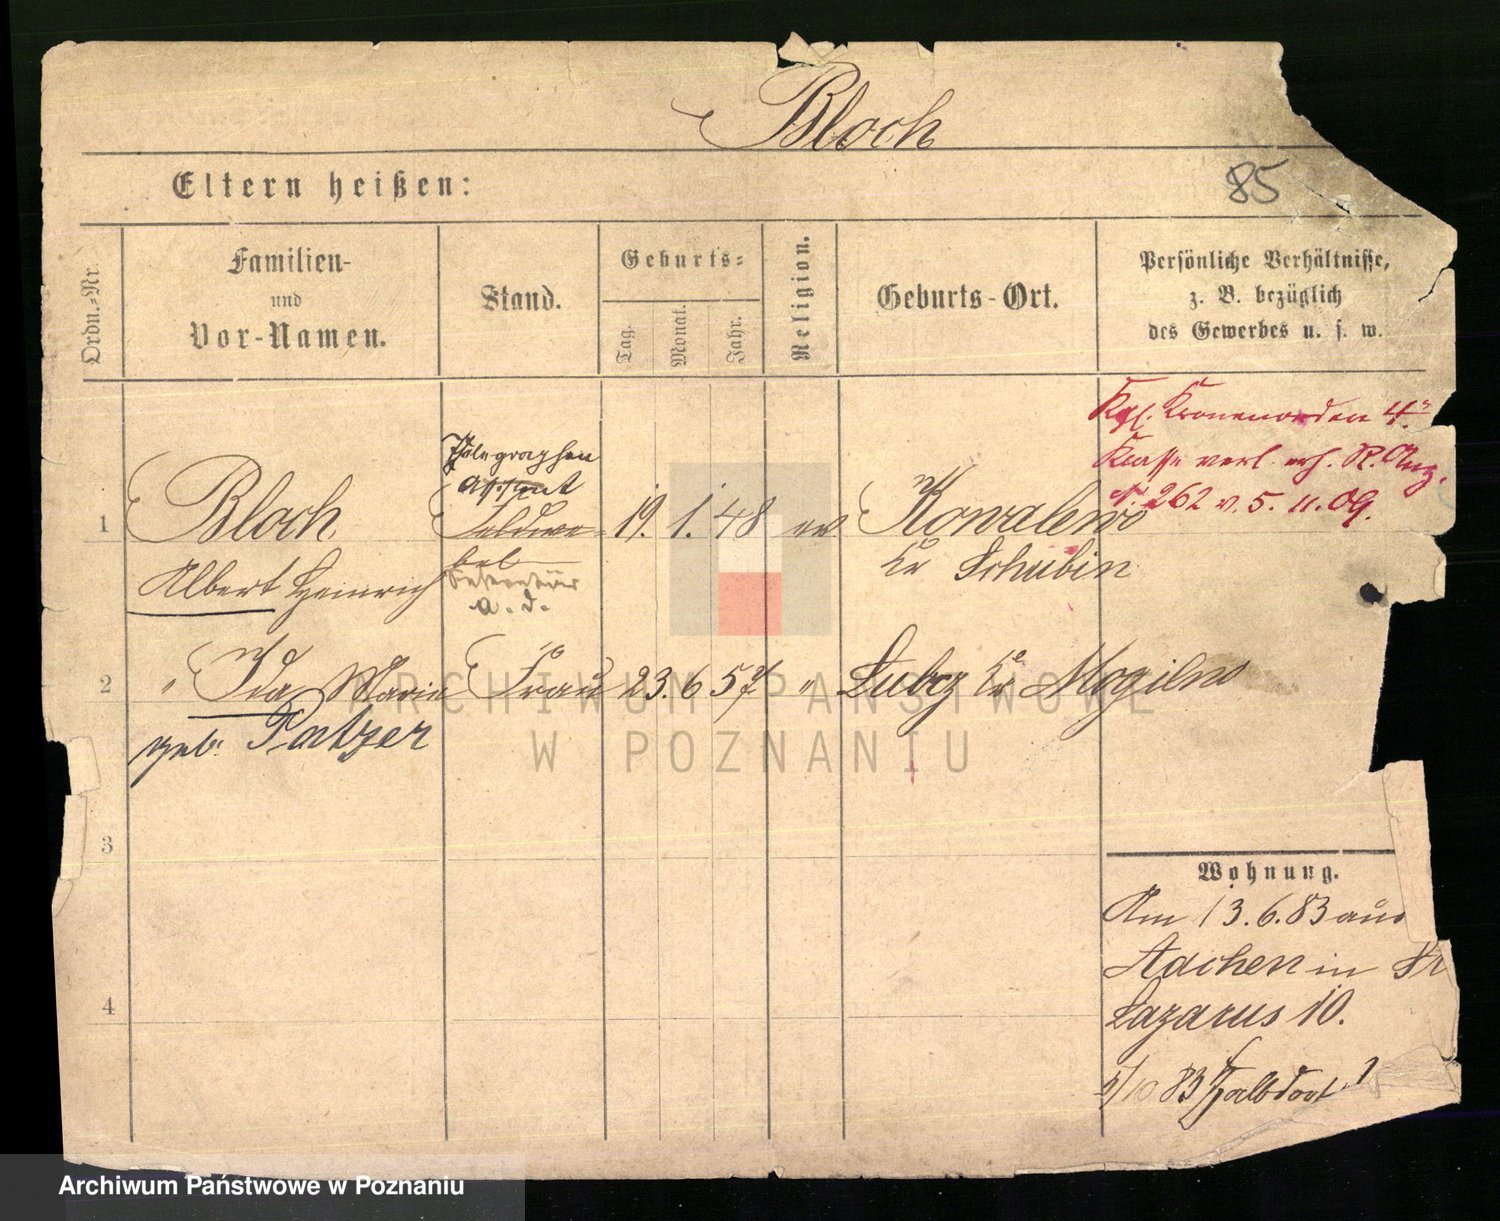 Bloch
85
Eltern heißen:
Ordn.-Nr.
Familien-
und
Vor-Namen.
Stand.
Geburts-
Tag.
Monat.
Jahr.
Religion.
Geburts-Ort.
Persönliche Verhältnisse,
z. B. bezüglich
des Gewerbes u. s. w.
Kgl. Kronenorden 4r
Klasse verl. erh. R. Anz.
N. 262 v. 5. 11. 09.
Telegraphen
Assistent
1 Bloch Feldwe- 19. 1. 48 ev Kowalewo
bel Kr Schubin
Albert Heinrich Sekretär
a. d.
2 " Ida Marie Frau 23. 6 57 " Lubcz Kr Mogilno
geb. Patzer
3
4
Wohnung.
Am 13. 6. 83 aus
Aachen in St
Lazarus 10.
/10 83 Halbdorf
ARCHIWUM PAŃSTWOWE
W POZNANIU
Archiwum Państwowe w Poznaniu